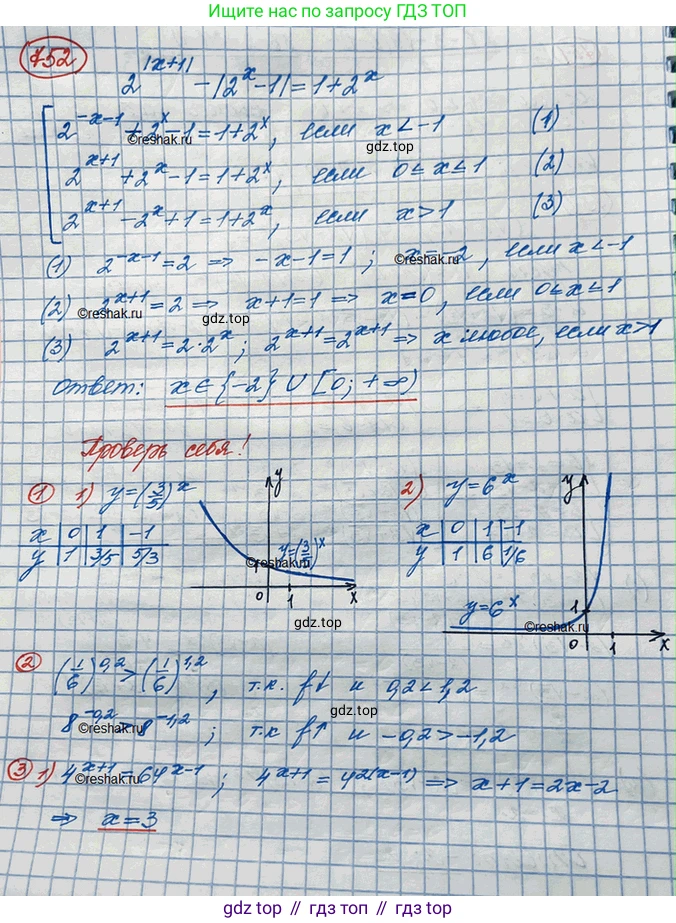 Ищите нас по запросу ГДЗ ТОП
752
2^|x+1| -|2^x-1|=1+2^x
2^-x-1 +2^x-1=1+2^x, если x<-1 (1)
©reshak.ru
gdz.top
2^x+1 +2^x-1=1+2^x, если 0≤x≤1 (2)
2^x+1 -2^x+1=1+2^x, если x>1 (3)
(1) 2^-x-1=2 => -x-1=1; x=-2, если x<-1
©reshak.ru
(2) 2^x+1=2 => x+1=1 => x=0, если 0≤x≤1
©reshak.ru
gdz.top
(3) 2^x+1=2·2^x; 2^x+1=2^x+1 => x любое, если x>1
ответ: x∈{-2}∪[0;+∞)
Проверь себя!
① 1) y=(3/5)^x
x 0 1 -1
y 1 3/5 5/3
y
y=(3/5)^x
1
©reshak.ru
0 1 x
gdz.top
2) y=6^x
x 0 1 -1
y 1 6 1/6
y
y=6^x
1
©reshak.ru
0 1 x
② (1/6)^0,2>(1/6)^1,2, т.к. f↓ и 0,2<1,2
gdz.top
8^-0,2>8^-1,2; т.к f↑ и -0,2>-1,2
©reshak.ru
③ 1) 4^x+1=64^x-1; 4^x+1=4^2(x-1) => x+1=2x-2
©reshak.ru
=> x=3
gdz.top // гдз топ // gdz.top // гдз топ // gdz.top